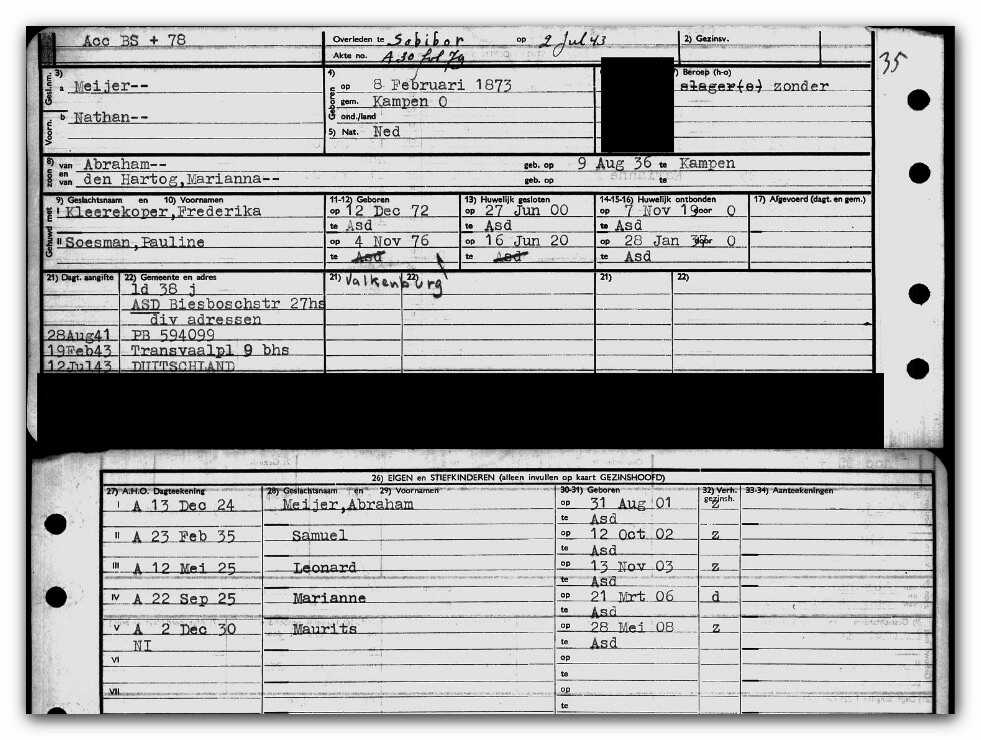 Acc BS + 78
Overleden te Sobibor op 2 Jul 43
2) Gezinsv.
Akte no. A 30 fol 79
35
Gesl.nm. 3) a Meijer--
4) Geboren op 8 Februari 1873
7) Beroep (h-o)
slager(s) zonder
gem. Kampen O
Voorn. b Nathan--
ond./land
5) Nat. Ned
8) zoon van Abraham-- geb. op 9 Aug 36 te Kampen
en van den Hartog,Marianna-- geb. op te
Gehuwd met 9) Geslachtsnaam en 10) Voornamen
11-12) Geboren
13) Huwelijk gesloten
14-15-16) Huwelijk ontbonden
17) Afgevoerd (dagt. en gem.)
I Kleerekoper,Frederika op 12 Dec 72 op 27 Jun 00 op 7 Nov 19 door O
te Asd te Asd te Asd
II Soesman,Pauline op 4 Nov 76 op 16 Jun 20 op 28 Jan 37 door O
te Asd te Asd te Asd
21) Dagt. aangifte 22) Gemeente en adres 21) Valkenburg 22) 21) 22)
ld 38 j
ASD Biesboschstr 27hs
div adressen
28Aug41 PB 594099
19Feb43 Transvaalpl 9 bhs
12Jul43 DUITSCHLAND
26) EIGEN en STIEFKINDEREN (alleen invullen op kaart GEZINSHOOFD)
27) A.H.O. Dagteekening 28) Geslachtsnaam en 29) Voornamen 30-31) Geboren 32) Verh. gezinsh. 33-34) Aanteekeningen
I A 13 Dec 24 Meijer,Abraham op 31 Aug 01 z
te Asd
II A 23 Feb 35 Samuel op 12 Oct 02 z
te Asd
III A 12 Mei 25 Leonard op 13 Nov 03 z
te Asd
IV A 22 Sep 25 Marianne op 21 Mrt 06 d
te Asd
V A 2 Dec 30 Maurits op 28 Mei 08 z
NI te Asd
VI op
te
VII op
te